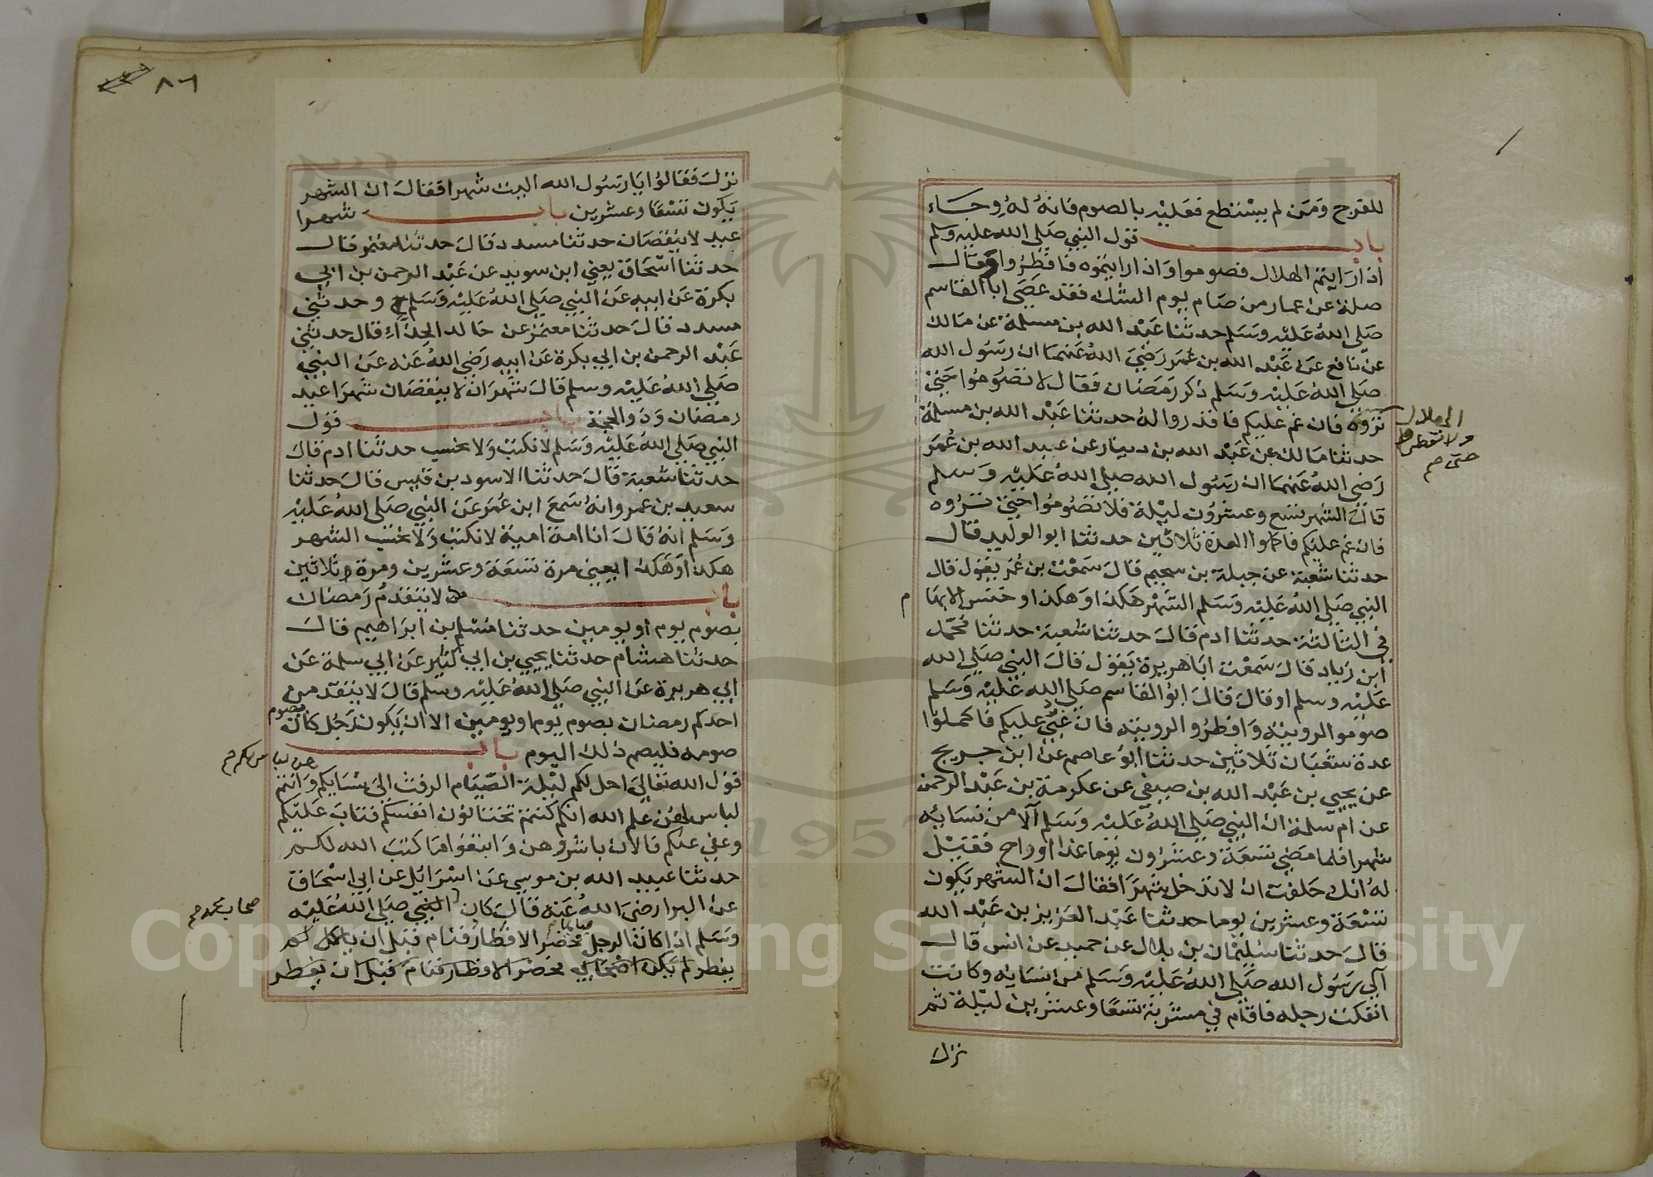 للفرج ومن لم يستطع فعليه بالصوم فانه له وجاء
باب قول النبي صلى الله عليه وسلم
اذا رايتم الهلال فصوموا واذا رايتموه فافطروا وقال
صلة عن عمار من صام يوم الشك فقد عصى ابا القاسم
صلى الله عليه وسلم حدثنا عبد الله بن مسلمة عن مالك
عن نافع عن عبد الله بن عمر رضي الله عنهما ان رسول الله
صلى الله عليه وسلم ذكر رمضان فقال لا تصوموا حتى
تروه فان غم عليكم فاقدروا له حدثنا عبد الله بن مسلمة
الهلال
ولا تفطروا
حتى صح
حدثنا مالك عن عبد الله بن دينار عن عبد الله بن عمر
رضي الله عنهما ان رسول الله صلى الله عليه وسلم
قال الشهر تسع وعشرون ليلة فلا تصوموا حتى تروه
فان غم عليكم فاكملوا العدة ثلاثين حدثنا ابو الوليد قال
حدثنا شعبة عن جبلة بن سحيم قال سمعت بن عمر يقول قال
النبي صلى الله عليه وسلم الشهر هكذا وهكذا وخنس الابهام
في الثالثة حدثنا ادم قال حدثنا شعبة حدثنا محمد
ابن زياد قال سمعت ابا هريرة يقول قال النبي صلى الله
عليه وسلم او قال قال ابو القاسم صلى الله عليه وسلم
صوموا لرويته وافطروا لرويته فان غبي عليكم فاكملوا
عدة شعبان ثلاثين حدثنا ابو عاصم عن ابن جريج
عن يحيي بن عبد الله بن صيفي عن عكرمة بن عبد الرحمن
عن ام سلمة ان النبي صلى الله عليه وسلم آلا من نسايه
شهرا فلما مضى تسعة وعشرون يوما غدا او راح فقيل
له انك حلفت ان لا تدخل شهرا فقال ان الشهر يكون
تسعة وعشرين يوما حدثنا عبد العزيز بن عبد الله
قال حدثنا سليمان بن بلال عن حميد عن انس قال
آلى رسول الله صلى الله عليه وسلم من نسايه وكانت
انفكت رجله فاقام في مشربة تسعا وعشرين ليلة ثم
نزل
٨٦
نزل فقالوا يا رسول الله اليت شهرا فقال ان الشهر
يكون تسعا وعشرين باب شهرا
عيد لا ينقصان حدثنا مسدد قال حدثنا معتمر قال
حدثنا اسحاق يعني ابن سويد عن عبد الرحمن بن ابي
بكرة عن ابيه عن النبي صلى الله عليه وسلم ح وحدثني
مسدد قال حدثنا معتمر عن خالد الحذاء قال حدثني
عبد الرحمن بن ابي بكرة عن ابيه رضي الله عنه عن النبي
صلى الله عليه وسلم قال شهران لا ينقصان شهرا عيد
رمضان وذو الحجة باب قول
النبي صلى الله عليه وسلم لا نكتب ولا نحسب حدثنا ادم قال
حدثنا شعبة قال حدثنا الاسود بن قيس قال حدثنا
سعيد بن عمرو انه سمع ابن عمر عن النبي صلى الله عليه
وسلم انه قال انا امة امية لا نكتب ولا نحسب الشهر
هكذا وهكذا يعني مرة تسعة وعشرين ومرة ثلاثين
باب لا يتقدم رمضان
بصوم يوم او يومين حدثنا مسلم بن ابراهيم قال
حدثنا هشام حدثنا يحيي بن ابي كثير عن ابي سلمة عن
ابي هريرة عن النبي صلى الله عليه وسلم قال لا يتقدمن
احدكم رمضان بصوم يوم او يومين الا ان يكون رجل كان يصوم
صومه فليصم ذلك اليوم باب
قول الله تعالى احل لكم ليلة الصيام الرفث الى نسايكم وانتم
هن لباس لكم صح
لباس لهن علم الله انكم كنتم تختانون انفسكم فتاب عليكم
وعفى عنكم فالان باشروهن وابتغوا ما كتب الله لكم
حدثنا عبيد الله بن موسى عن اسرائيل عن ابي اسحاق
عن البرا رضي الله عنه قال كان النبي صلى الله عليه
صحاب محمد صح
وسلم اذا كان الرجل صايما فحضر الافطار فنام قبل ان ياكل لم
يفطر لم يكن اصحابي فحضر الافطار فنام قبل ان يفطر
Copyright © King Saud University
1957